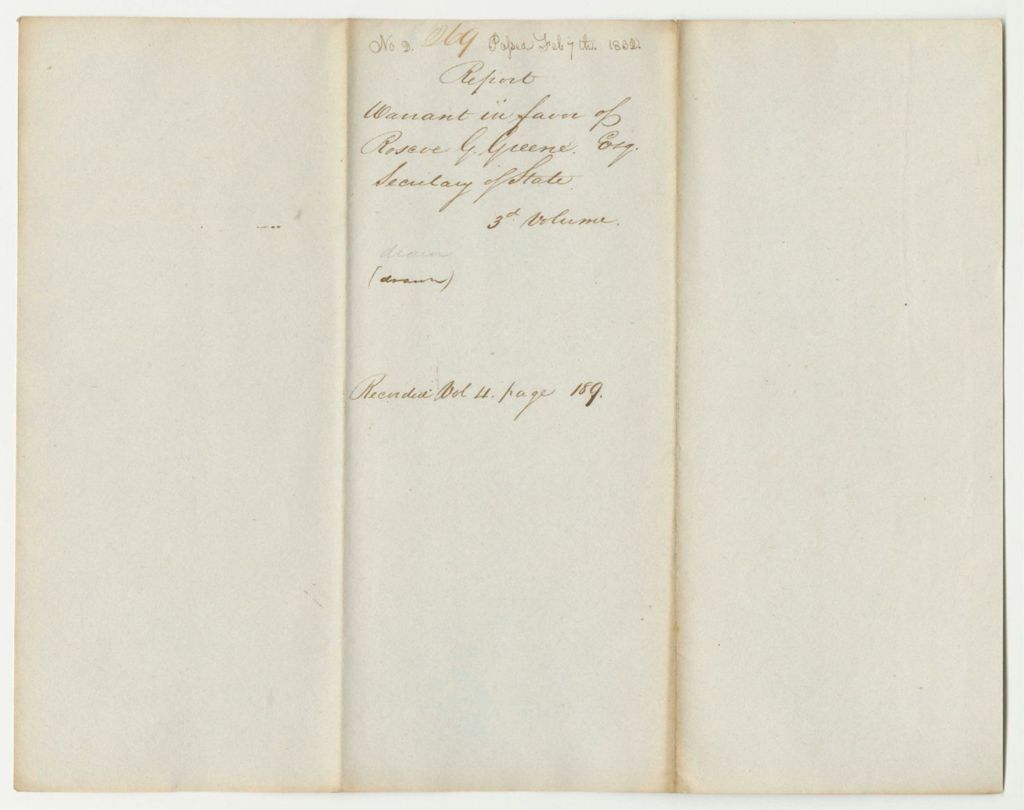 No 2. 269 Passed Feb 7th. 1832.
Report
Warrant in favor of
Roscoe G. Greene. Esq.
Secretary of State.
3d Volume.
drawn
(drawn)
Recorded Vol 4. page 189.